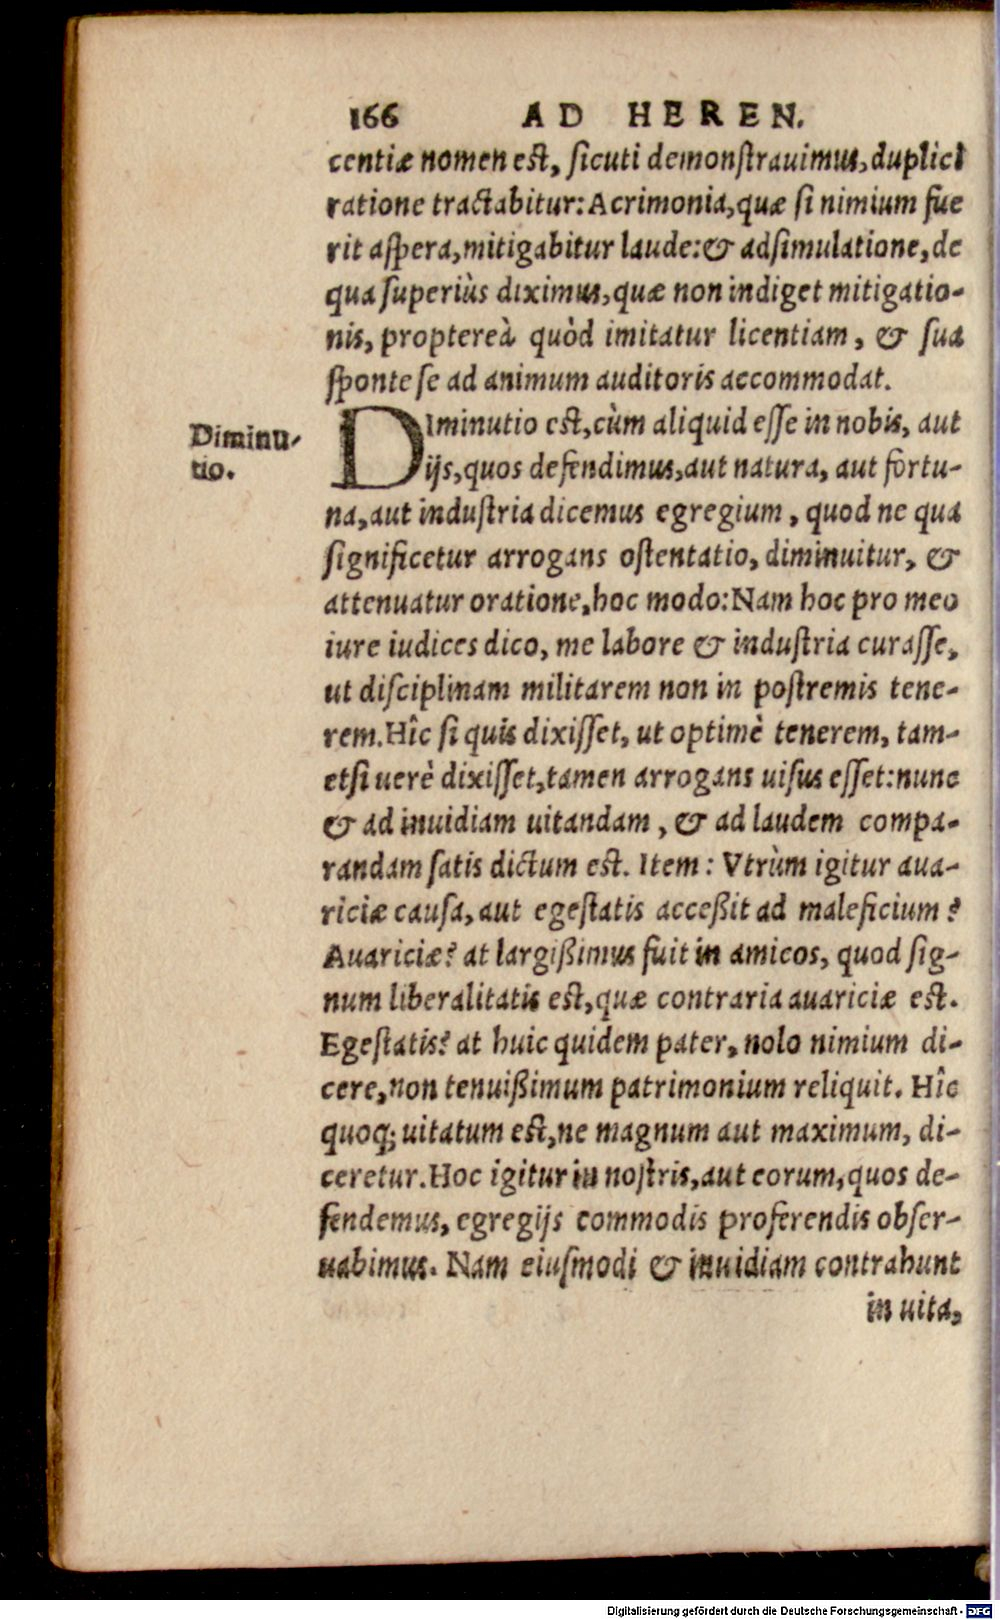 166 AD HEREN.
centiæ nomen est, sicuti demonstrauimus, duplici
ratione tractabitur: Acrimonia, quæ si nimium fue
rit aspera, mitigabitur laude: & adsimulatione, de
qua superiùs diximus, quæ non indiget mitigatio-
nis, proptereà quòd imitatur licentiam, & sua
sponte se ad animum auditoris accommodat.
Diminu-
tio.
DIminutio est, cùm aliquid esse in nobis, aut
ijs, quos defendimus, aut natura, aut fortu-
na, aut industria dicemus egregium, quod ne qua
significetur arrogans ostentatio, diminuitur, &
attenuatur oratione, hoc modo: Nam hoc pro meo
iure iudices dico, me labore & industria curasse,
ut disciplinam militarem non in postremis tene-
rem. Hîc si quis dixisset, ut optimè tenerem, tam-
etsi uerè dixisset, tamen arrogans uisus esset: nunc
& ad inuidiam uitandam, & ad laudem compa-
randam satis dictum est. Item: Vtrùm igitur aua-
riciæ causa, aut egestatis acceßit ad maleficium?
Auariciæ? at largißimus fuit in amicos, quod sig-
num liberalitatis est, quæ contraria auariciæ est.
Egestatis? at huic quidem pater, nolo nimium di-
cere, non tenuißimum patrimonium reliquit. Hîc
quoq; uitatum est, ne magnum aut maximum, di-
ceretur. Hoc igitur in nostris, aut eorum, quos de-
fendemus, egregijs commodis proferendis obser-
uabimus. Nam eiusmodi & inuidiam contrahunt
in uita,
Digitalisierung gefördert durch die Deutsche Forschungsgemeinschaft - DFG